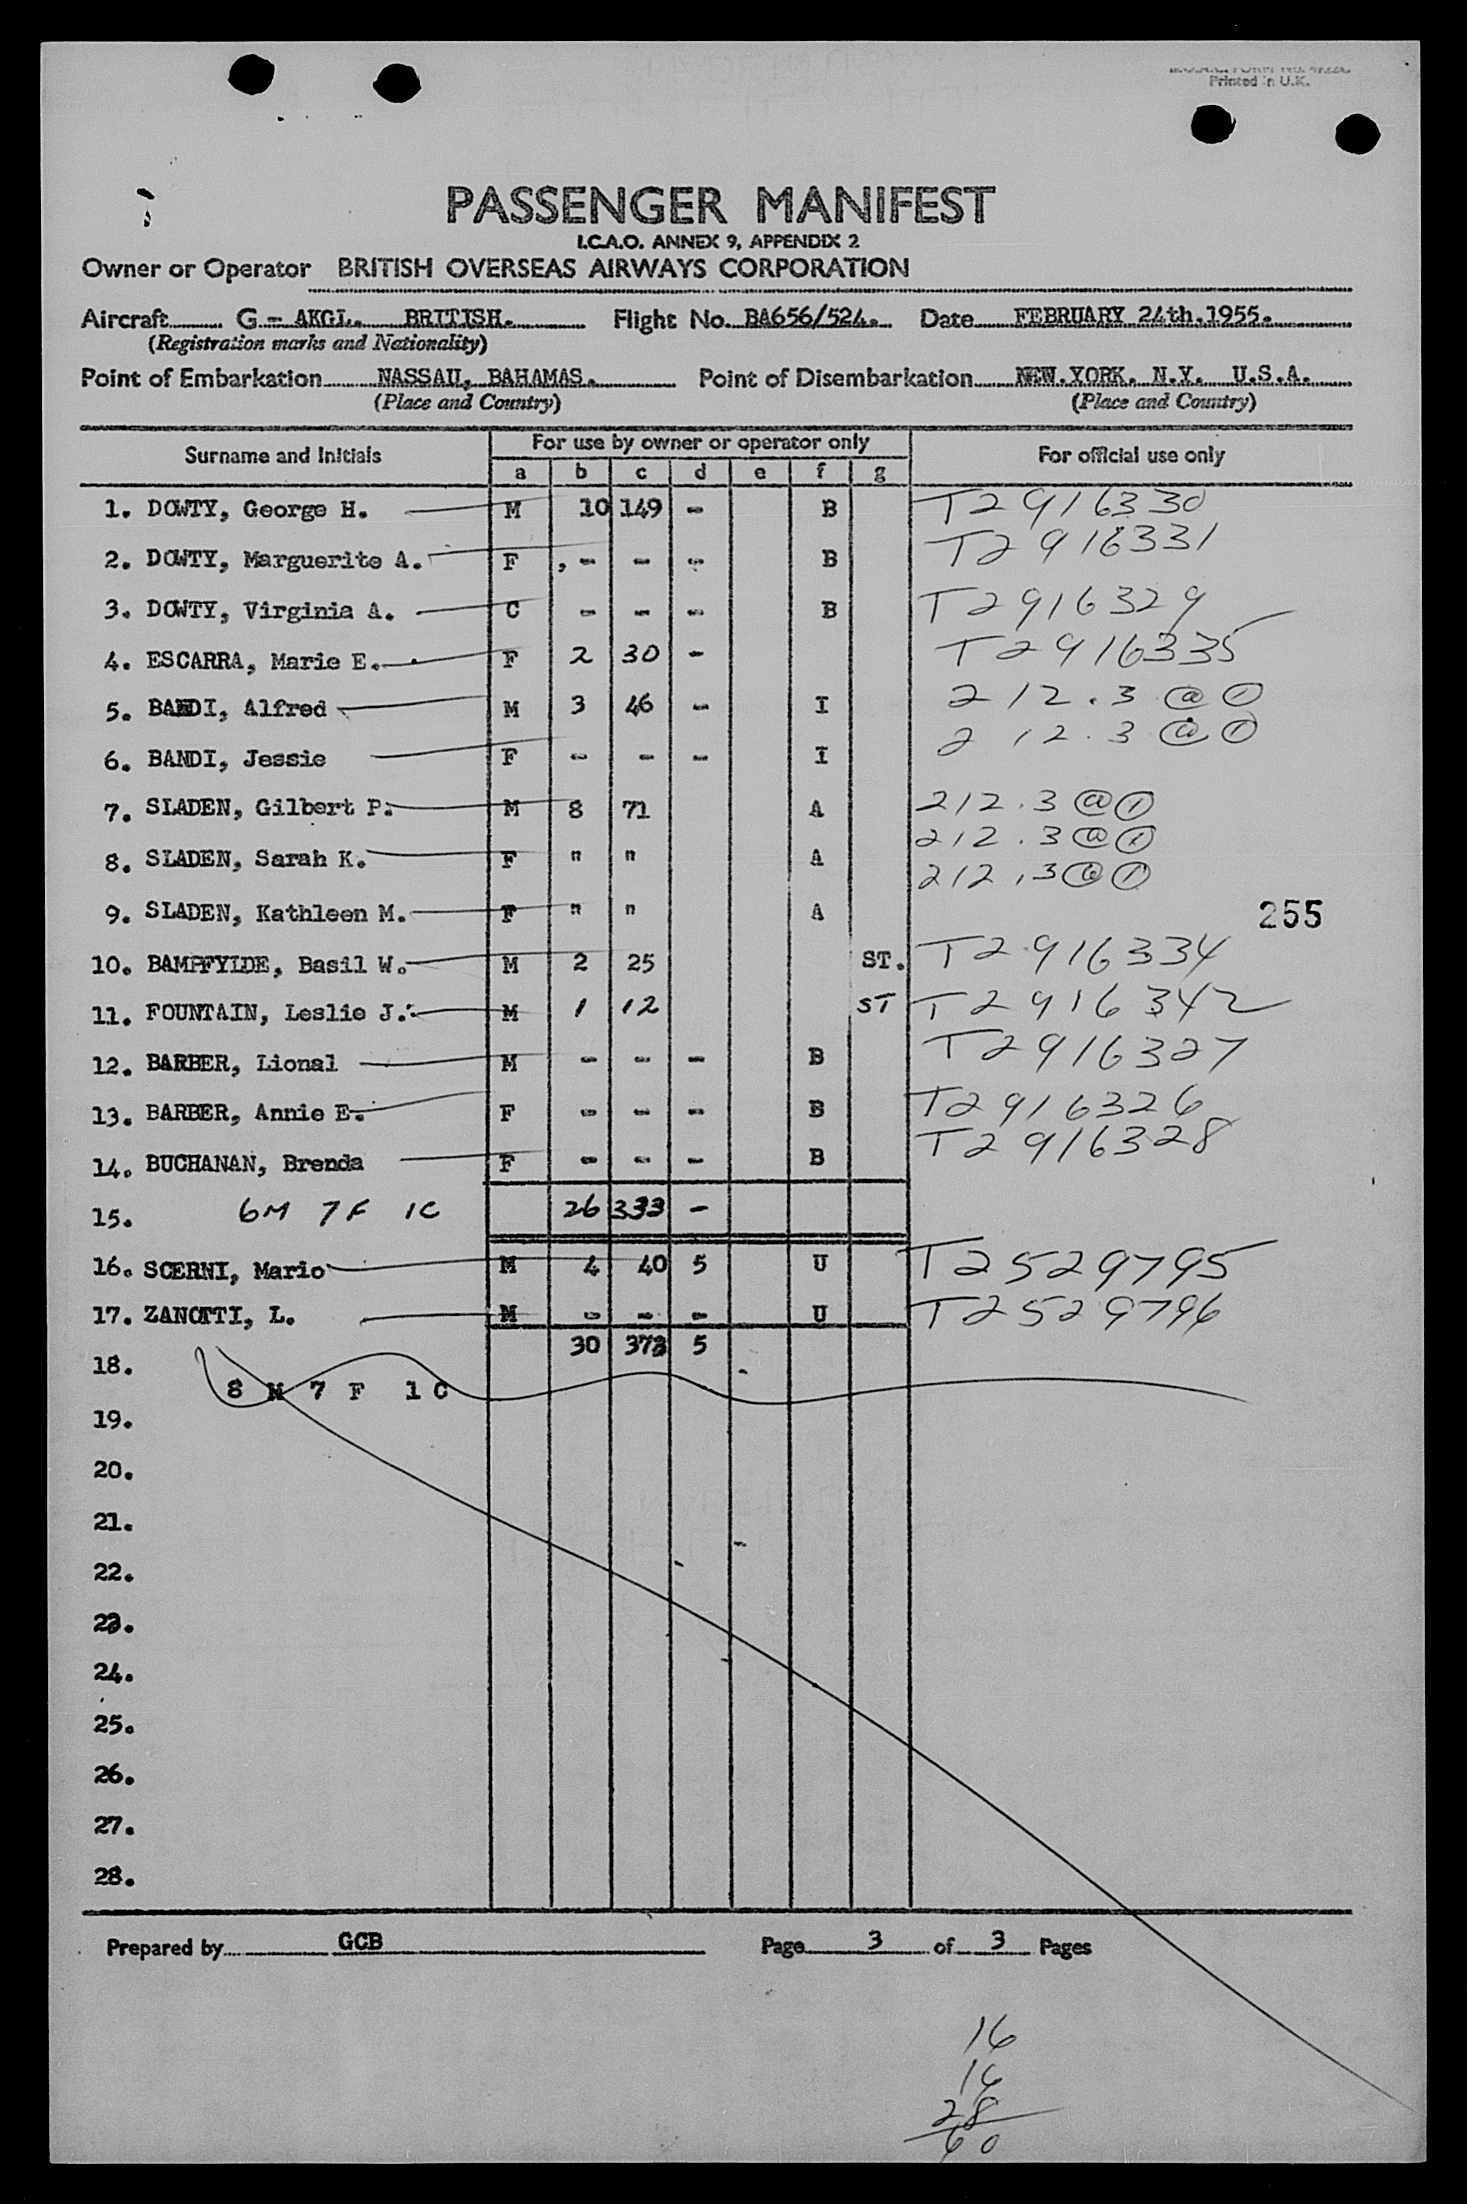 Printed in U.K.
PASSENGER MANIFEST
I.C.A.O. ANNEX 9, APPENDIX 2
Owner or Operator BRITISH OVERSEAS AIRWAYS CORPORATION
Aircraft G - AKGL. BRITISH. Flight No. BA656/524. Date FEBRUARY 24th.1955.
(Registration marks and Nationality)
Point of Embarkation NASSAU, BAHAMAS. Point of Disembarkation NEW.YORK. N.Y. U.S.A.
(Place and Country) (Place and Country)
Surname and Initials For use by owner or operator only For official use only
a b c d e f g
1. DOWTY, George H. M 10 149 - B T2916330
2. DOWTY, Marguerite A. F - - - B T2916331
3. DOWTY, Virginia A. C - - - B T2916329
4. ESCARRA, Marie E. F 2 30 - T2916335
5. BANDI, Alfred M 3 46 - I 212.3 @ 1
6. BANDI, Jessie F - - - I 212.3 @ 1
7. SLADEN, Gilbert P. M 8 71 A 212.3 @ 1
8. SLADEN, Sarah K. F " " A 212.3 @ 1
9. SLADEN, Kathleen M. F " " A 212.3 @ 1
255
10. BAMPFYLDE, Basil W. M 2 25 ST. T2916334
11. FOUNTAIN, Leslie J. M 1 12 ST T2916342
12. BARBER, Lional M - - - B T2916327
13. BARBER, Annie E. F - - - B T2916326
14. BUCHANAN, Brenda F - - - B T2916328
15. 6M 7F 1C 26 333 -
16. SCERNI, Mario M 4 40 5 U T2529795
17. ZANOTTI, L. M - - - U T2529796
30 373 5
18.
8 M 7 F 1 C
19.
20.
21.
22.
23.
24.
25.
26.
27.
28.
Prepared by GCB Page 3 of 3 Pages
16
16
28
60